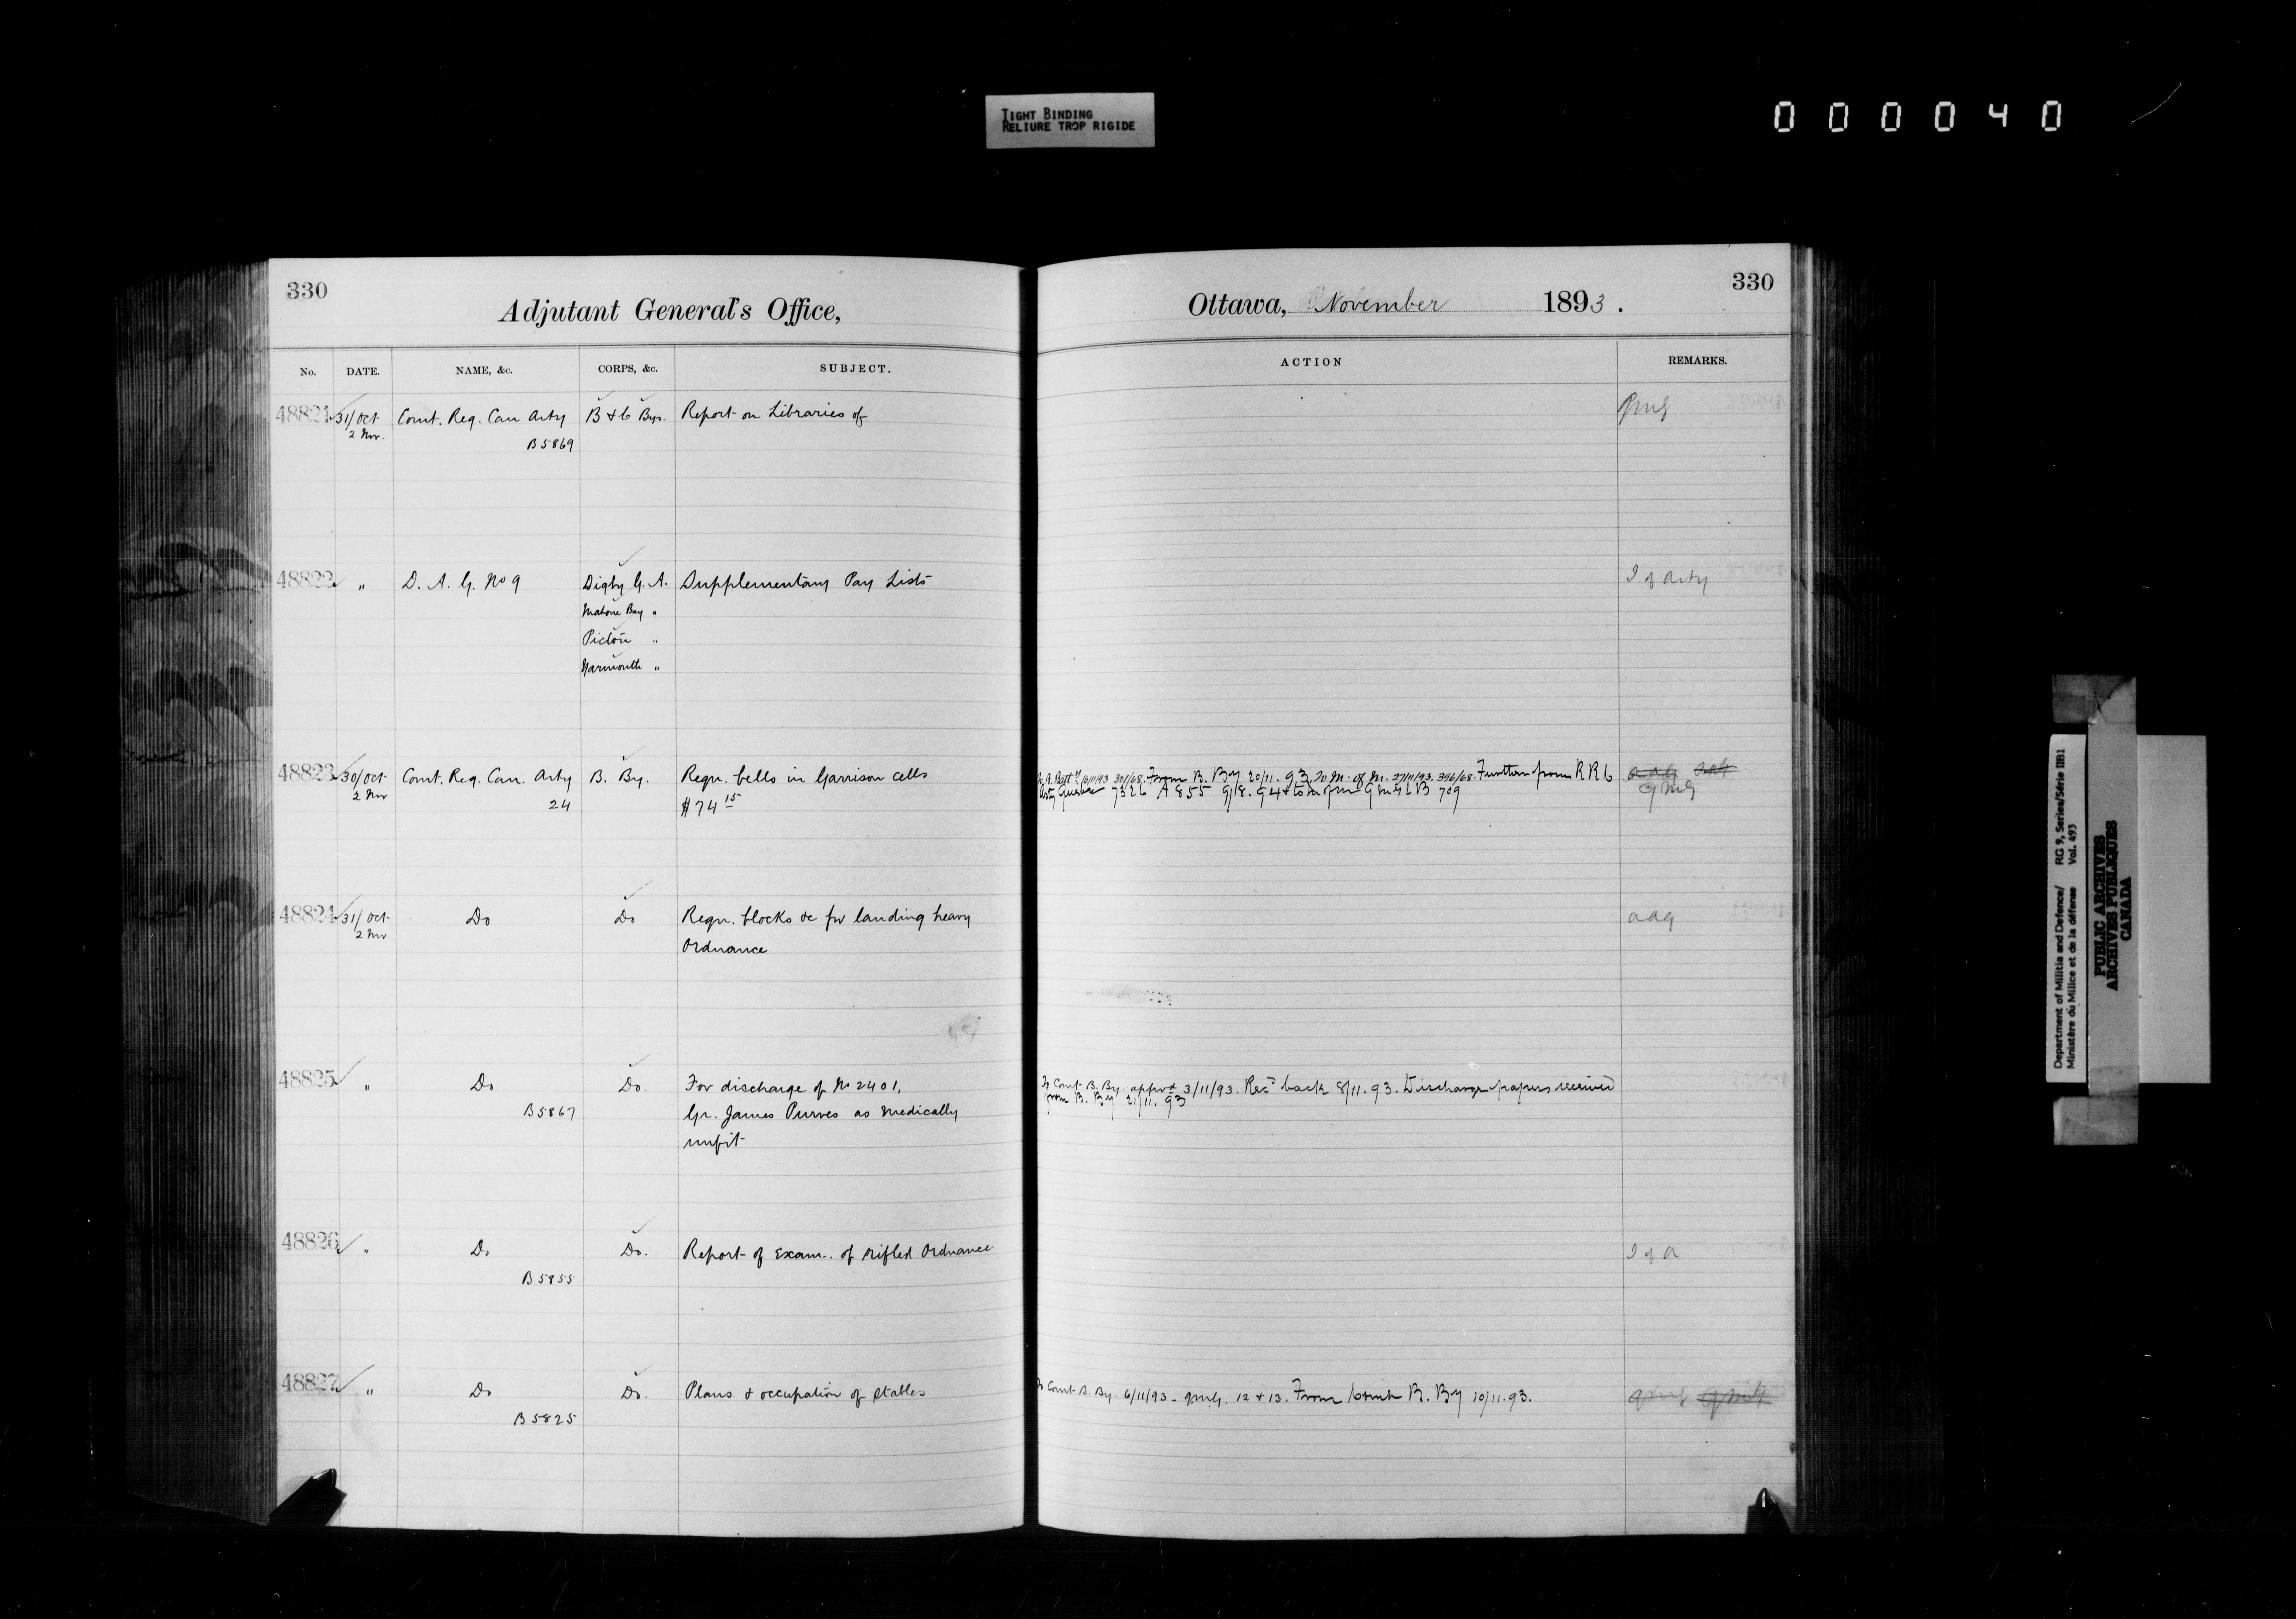 TIGHT BINDING
RELIURE TROP RIGIDE
000040
330
Adjutant General's Office,
No. DATE. NAME, &c. CORPS, &c. SUBJECT.
48821 31/Oct Comt. Reg. Can Arty B & C Bys. Report on Libraries of
2 Nov. B5869
48822 " D. A. G. No 9 Digby G. A. Supplementary Pay Lists
Mahone Bay "
Pictou "
Yarmouth "
48823 30/Oct Comt. Reg. Can. Arty B. By. Reqn. bells in Garrison cells
2 Nov 24 $74 15
48824 31/Oct Do Do Reqn. blocks &c for landing heavy
2 Nov Ordnance
48825 " Do Do. For discharge of No 2401,
B5867 Gr. James Purves as medically
unfit
48826 " Do Do. Report of Exam.. of rifled Ordnance
B5855
48827 " Do Do. Plans & occupation of stables
B5825
330
Ottawa, November 1893.
ACTION REMARKS.
QMG
I of Arty
From B. By 20/11.93. To M. of M. 27/11/93. 396/68. Further from RRC
Arty Quebec 7326 A855 9/8.94 & to M of M QMG LB 709
aag
QMG
aag
To Comt B. By. approvd 3/11/93. Recd back 8/11.93. Discharge papers received
from B. By 21/11.93
I of A
To Comt B. By. 6/11/93 - QMG. 12 & 13. From Comt B. By 10/11.93.
QMG
Department of Militia and Defence/ RG 9, Series/Série IIB1
Ministère du Milice et de la défense Vol. 493
PUBLIC ARCHIVES
ARCHIVES PUBLIQUES
CANADA